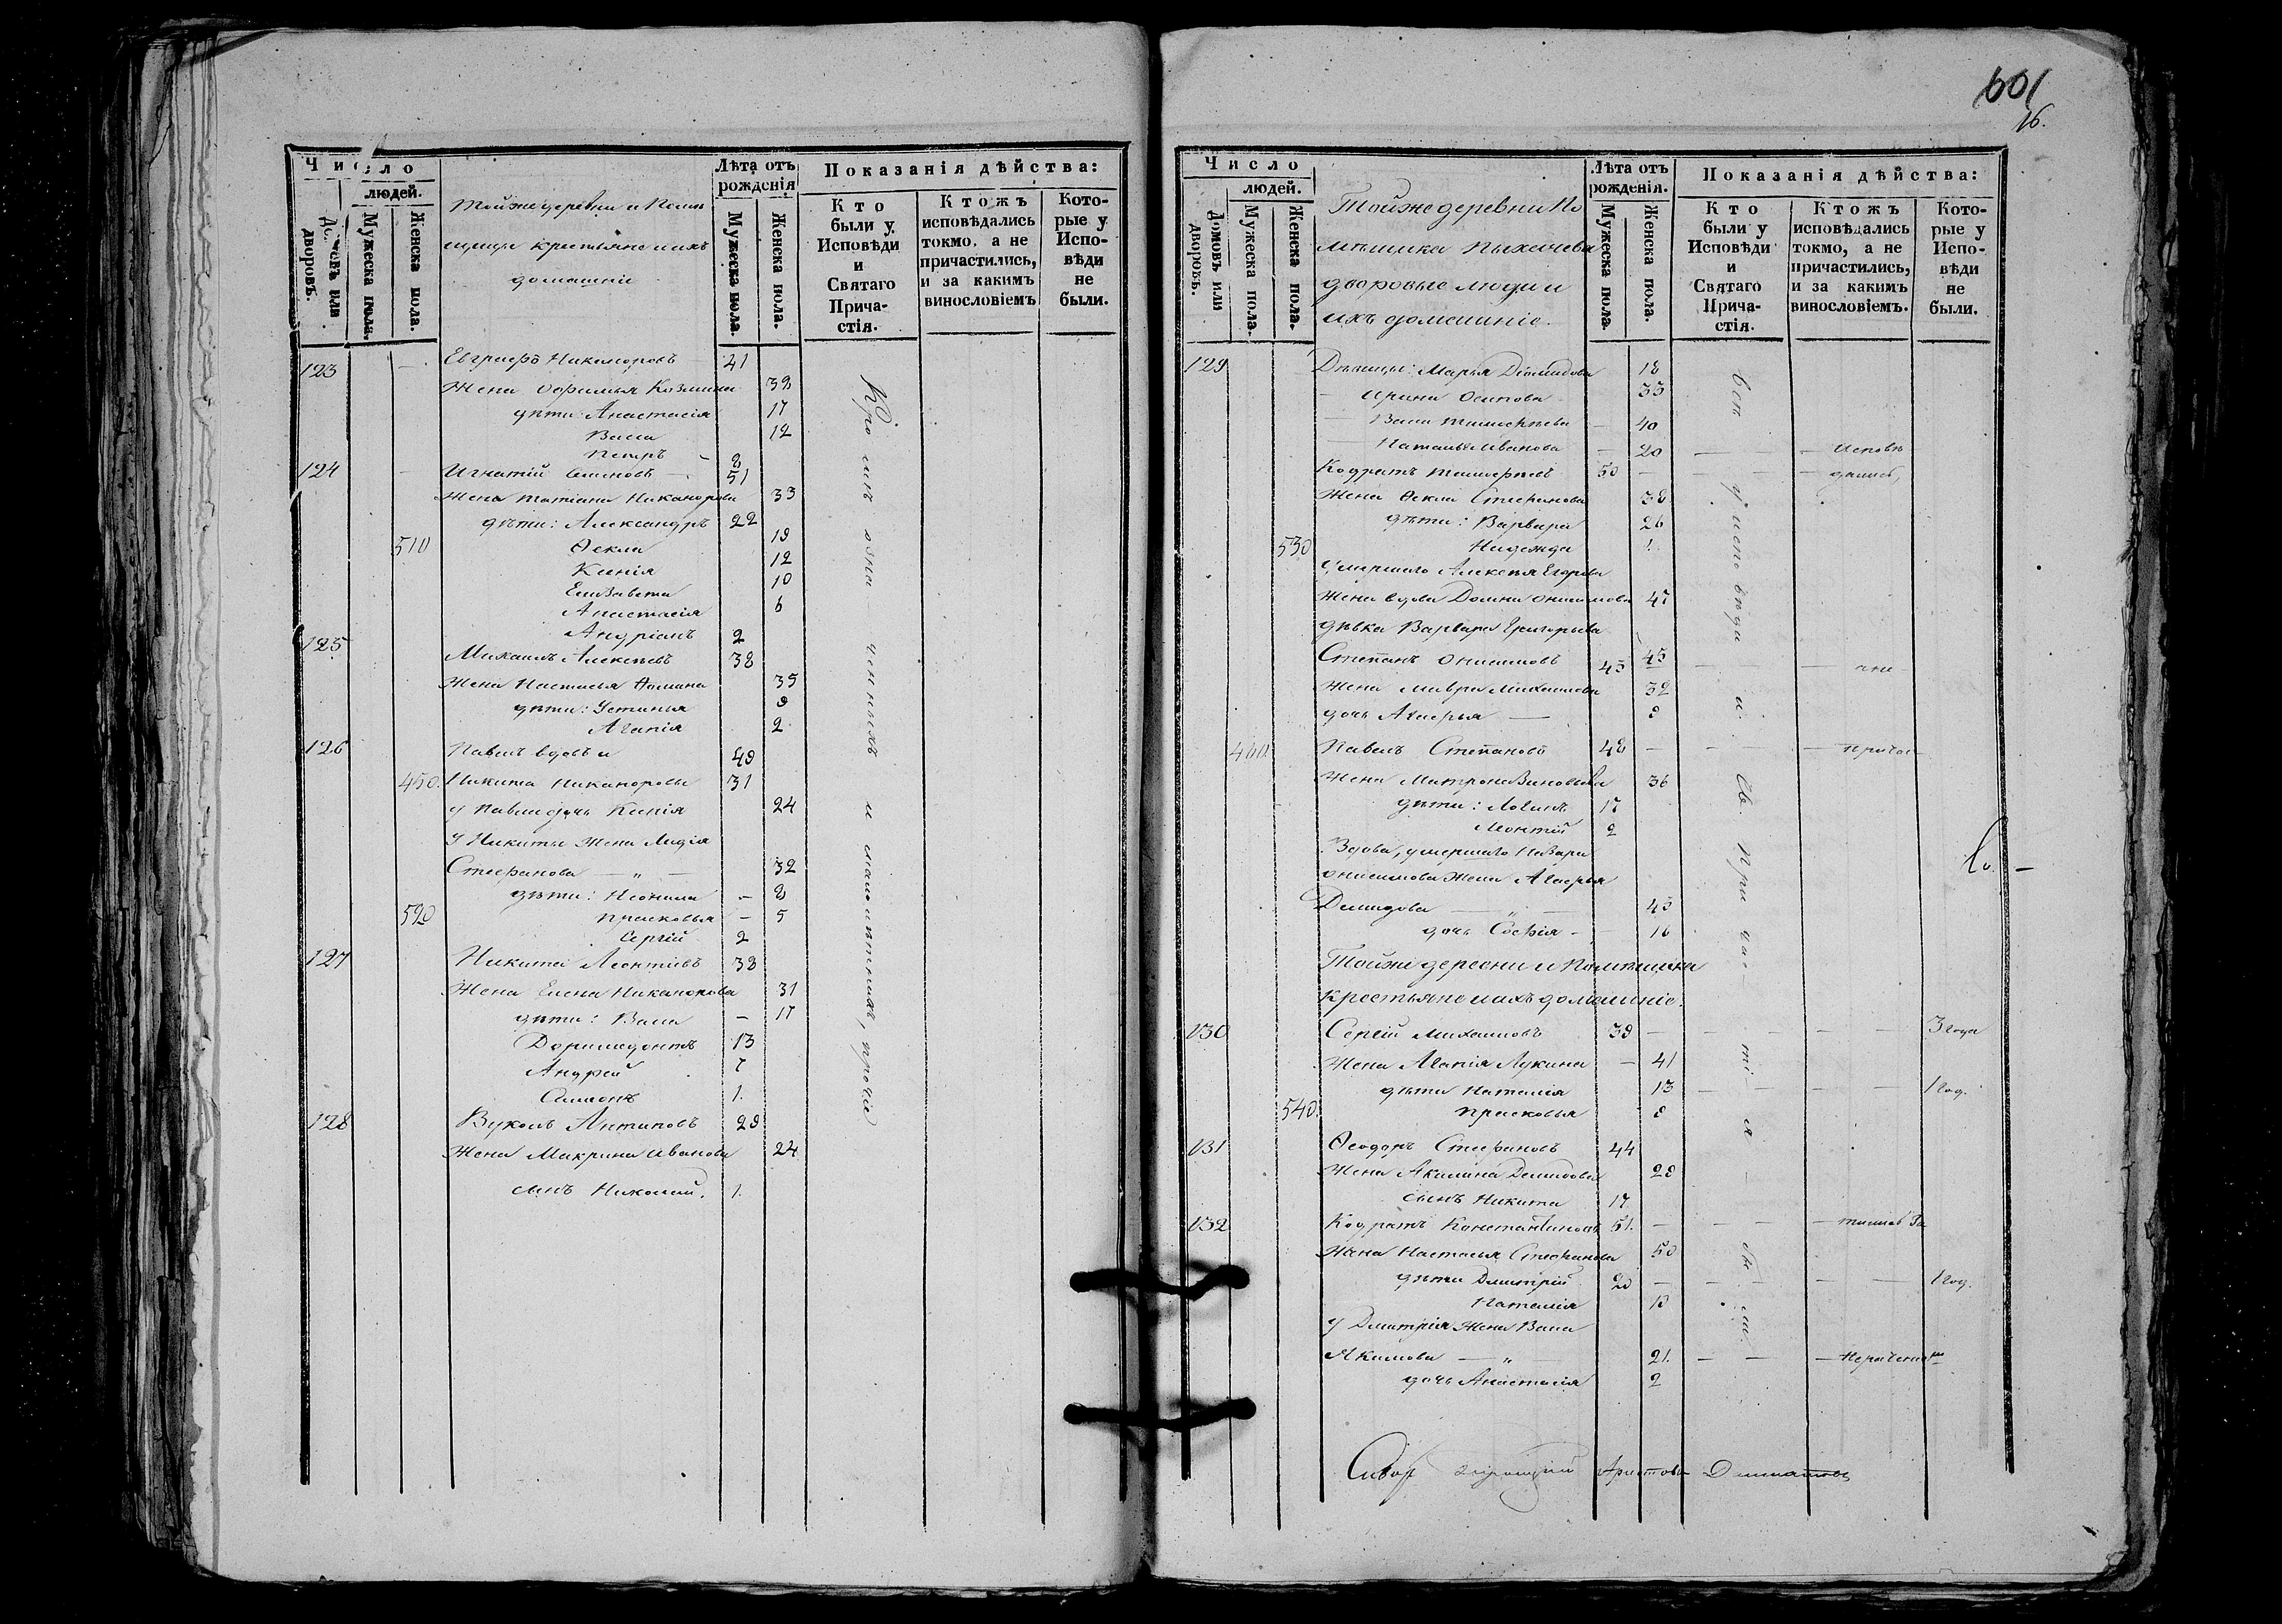 Число
людей.
Домовъ или дворовъ.
Мужеска пола.
Женска пола.
Тойже деревни и Помѣ
щица крестьяне и ихъ
домашніе
Лѣта отъ рожденія
Мужеска пола.
Женска пола.
Показанія дѣйства:
Кто были у Исповѣди и Святаго Прича-стія.
Ктожъ исповѣдались токмо, а не причастились, и за какимъ винословіемъ
Кото-рые у Испо-вѣди не были.
123 Евграфъ Никаноровъ 41
Жена Евфимья Козмина 32
дѣти: Анастасія 17
Васса 12
Петръ 2
124 Игнатій Семеновъ 51
Жена Татіана Никанорова 33
дѣти: Александръ 22
510 Ѳекла 19
Ксенія 12
Елизавета 10
Анастасія 6
Андріанъ 2
125 Михаилъ Алексѣевъ 38
Жена Настасья Ѳомина 35
дѣти: Устинья 9
Агапія 2
126 Павелъ вдовъ и 49
450. Никита Никаноровы 31
у Павла дочь Ксенія 24
У Никиты Жена Лидія
Стефанова — „ — 32
дѣти: Неонила - 8
520 Прасковья - 5
Сергій 2
127 Никита Леонтіевъ 38
Жена Елена Никанорова 31
дѣти: Васса - 17
Доримедонтъ 13
Андрей 7
Симеонъ 1.
128 Вуколъ Антиповъ 29
Жена Макрина Иванова 24
сынъ Николай. 1.
Кромѣ означенныхъ и малолѣтнихъ, прочіе
601
16.
Число
людей.
Домовъ или дворовъ.
Мужеска пола.
Женска пола.
Тойже деревни По
мѣщика Пыхачева
дворовые люди и
ихъ домашніе.
Лѣта отъ рожденія.
Мужеска пола.
Женска пола.
Показанія дѣйства:
Кто были у Исповѣди и Святаго Прича-стія.
Ктожъ исповѣдались токмо, а не причастились, и за какимъ винословіемъ.
Кото-рые у Испо-вѣди не были.
129 Дѣвицы: Марья Діомидова 18
Ирина Осипова 33
Васса Тимофѣева — 40
Наталья Иванова — 20 — — Исповѣ
Кодратъ Тимофѣевъ 50 — — — дались,
Жена Ѳекла Стефанова 38
дѣти: Варвара 26
530 Надежда 1.
Умершаго Алексѣя Егорова
Жена вдова Домна Онисимова 47
дѣвка Варвара Григорьева 45
Степанъ Онисимовъ 45 — — а не
Жена Мавра Михаилова 32
дочь Агафья — 8
400. Павелъ Степановъ 48 — — — причас-
Жена Матрона Зиновьева 36
дѣти: Логинъ 17
Леонтій 2
Вдова, умершаго Назара
Онисимова Жена Агафья
Демидова — „ — 45
дочь Софія - 16
Тойже деревни и Помѣщика
крестьяне и ихъ домашніе.
130 Сергій Михаиловъ 39 — — — — 3 года
Жена Агапія Лукина — 41
дѣти Наталія 13 — — — — 1 год.
540. Прасковья 8
131 Ѳеодоръ Стефановъ 44
Жена Акилина Демидова 28
сынъ Никита 17
132 Кодратъ Константиновъ 51. — — — тились за
Жена Настасья Стефанова 50
дѣти Дмитрій 20 — — — — 1 год.
Наталія 13
У Дмитрія Жена Васса
Якимова — „ — 21. — — — нераченіемъ
дочь Анастасія 2
всѣ у исповѣди и Св. Причастія были